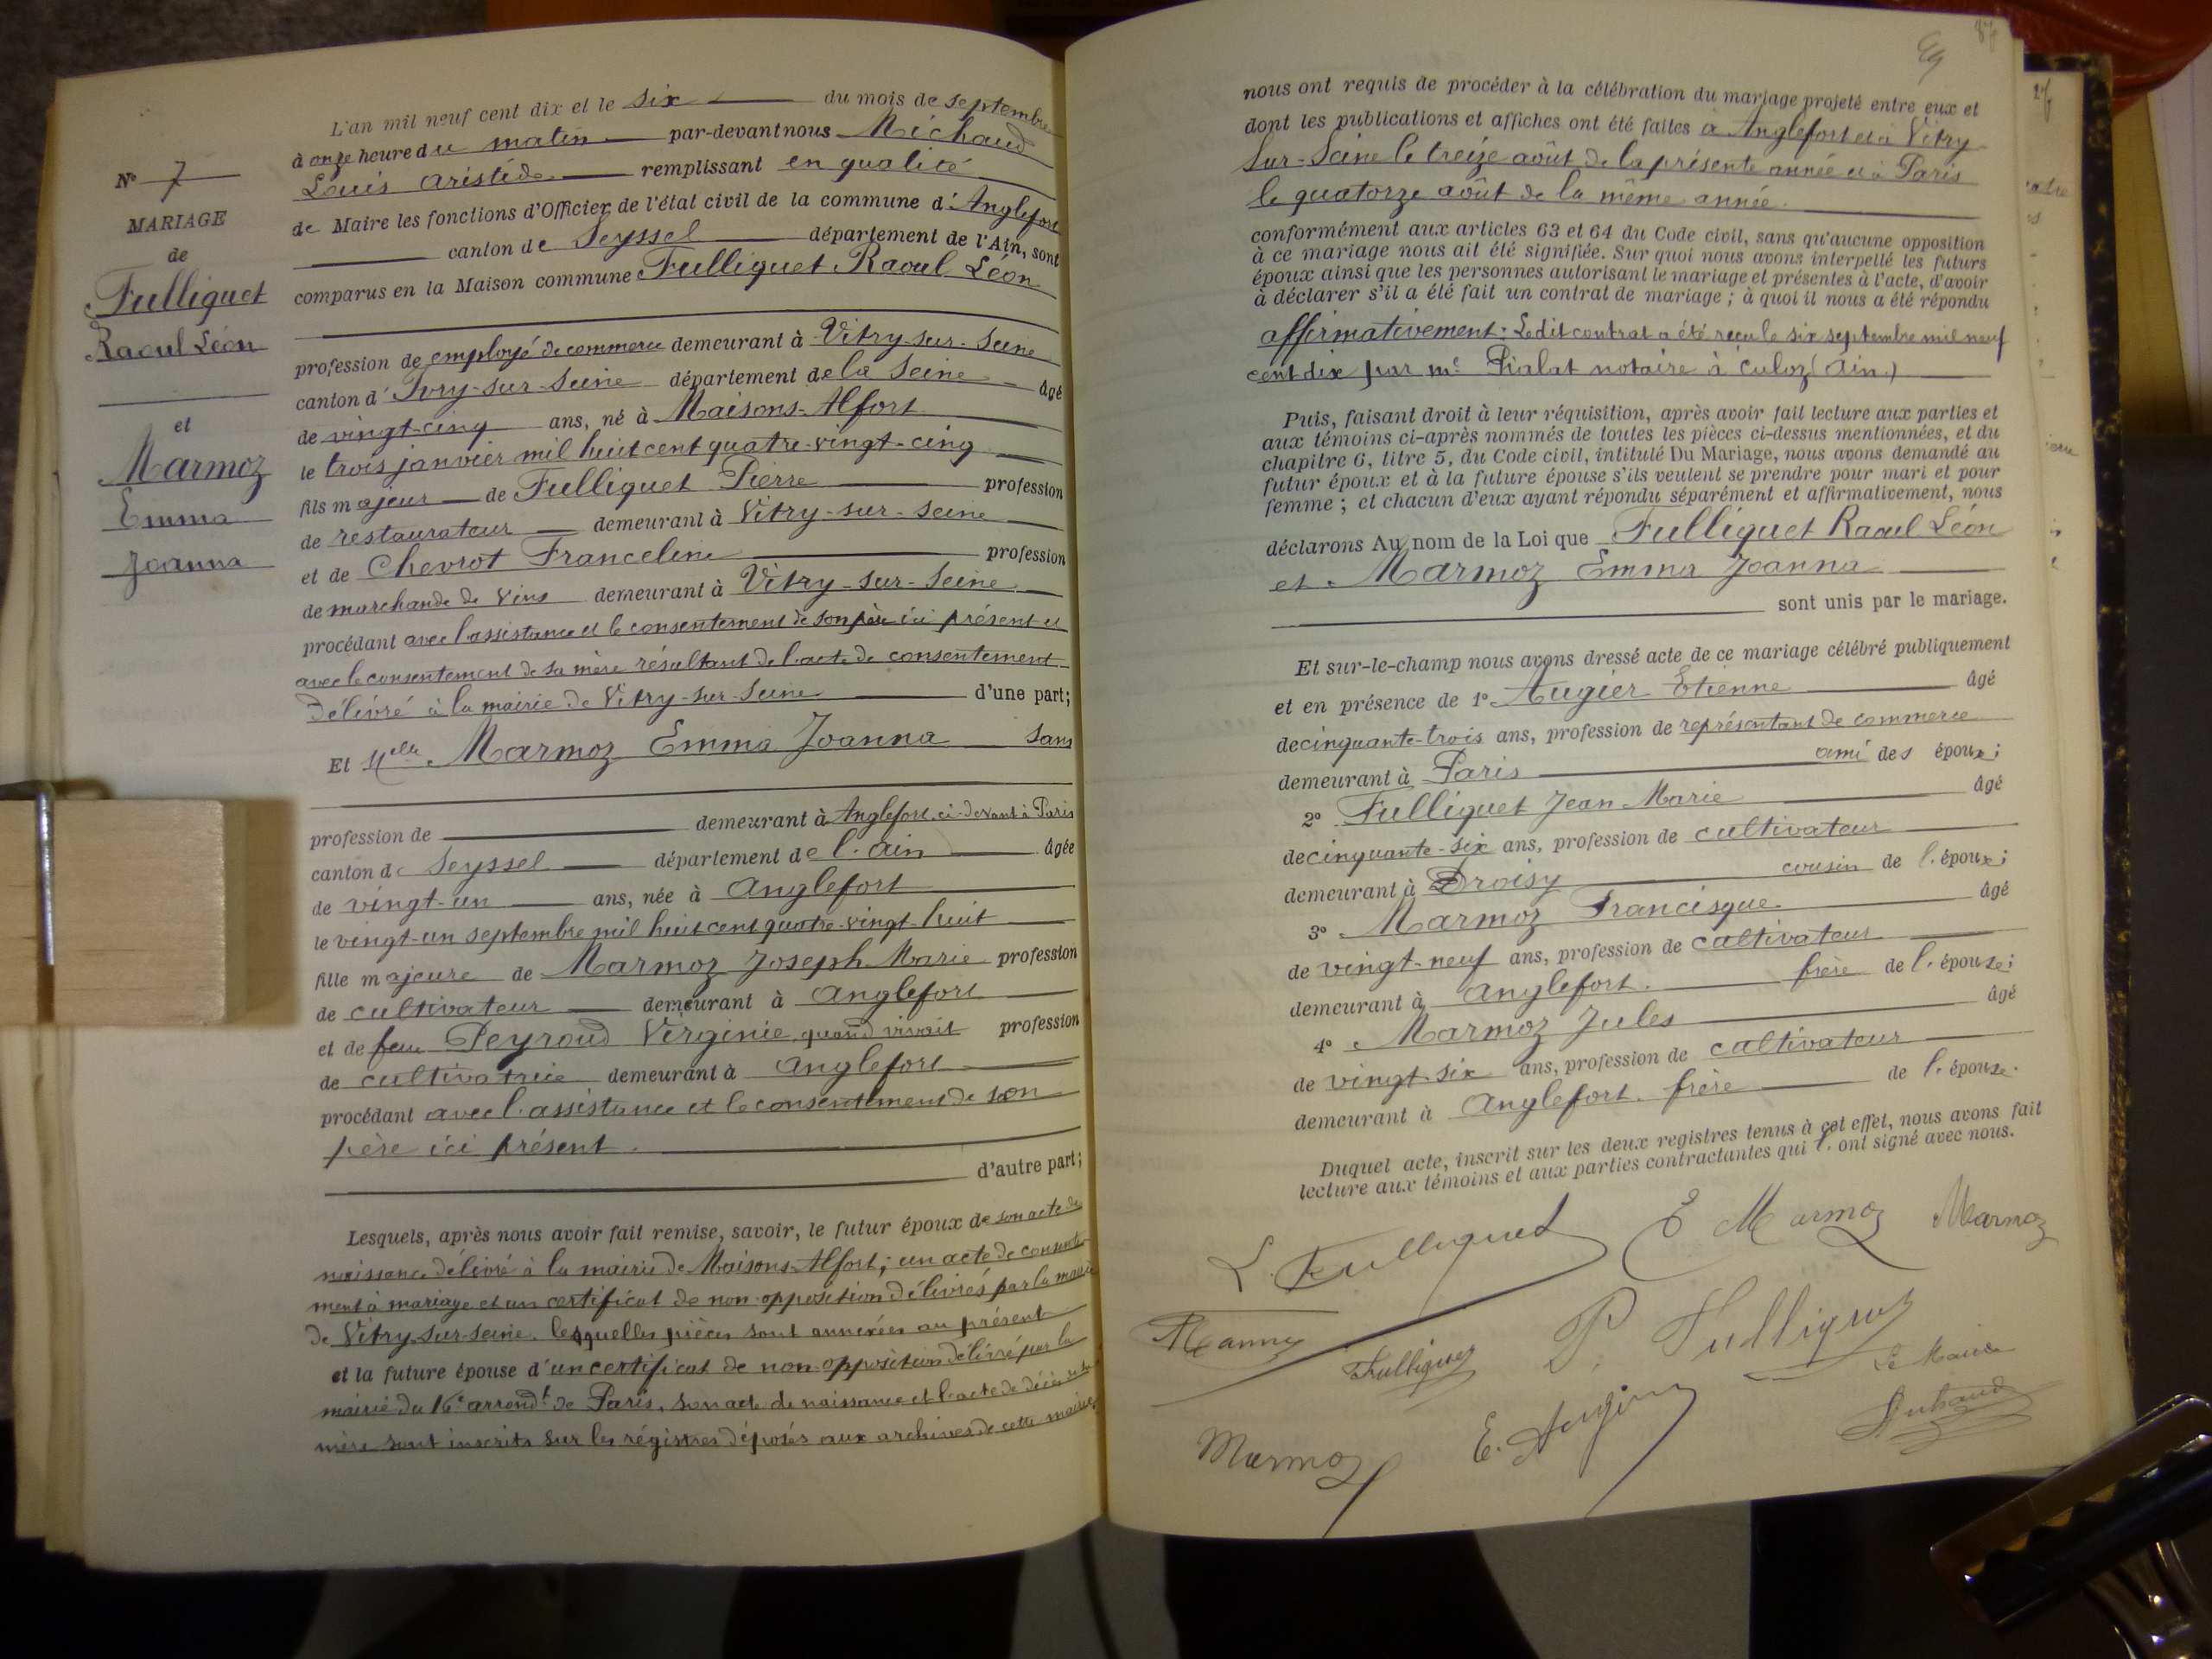 N° 7
MARIAGE
de
Fulliquet
Raoul Léon
et
Marmoz
Emma
Joanna
L'an mil neuf cent dix et le six du mois de septembre
à onze heure du matin par-devant nous Michaud
Louis Aristide remplissant en qualité
de Maire les fonctions d'Officier de l'état civil de la commune d'Anglefort
canton de Seyssel département de l'Ain, sont
comparus en la Maison commune Fulliquet Raoul Léon
profession de employé de commerce demeurant à Vitry-sur-Seine
canton d'Ivry-sur-Seine département de la Seine âgé
de vingt-cinq ans, né à Maisons-Alfort
le trois janvier mil huit cent quatre-vingt-cinq
fils majeur de Fulliquet Pierre profession
de restaurateur demeurant à Vitry-sur-Seine
et de Chevrot Franceline profession
de marchande de vins demeurant à Vitry-sur-Seine
procédant avec l'assistance et le consentement de son père ici présent et
avec le consentement de sa mère résultant de l'acte de consentement
délivré à la mairie de Vitry-sur-Seine d'une part;
Et Melle Marmoz Emma Joanna sans
profession de demeurant à Anglefort, ci-devant à Paris
canton de Seyssel département de l'Ain âgée
de vingt-un ans, née à Anglefort
le vingt-un septembre mil huit cent quatre-vingt-huit
fille majeure de Marmoz Joseph Marie profession
de cultivateur demeurant à Anglefort
et de feue Peyroud Virginie quand vivait profession
de cultivatrice demeurant à Anglefort
procédant avec l'assistance et le consentement de son
père ici présent.
d'autre part;
Lesquels, après nous avoir fait remise, savoir, le futur époux de son acte de
naissance délivré à la mairie de Maisons-Alfort; un acte de consente-
ment à mariage et un certificat de non-opposition délivrés par la mairie
de Vitry-sur-Seine. lesquelles pièces sont annexées au présent
et la future épouse d'un certificat de non-opposition délivré par la
mairie du 16e arrondt de Paris, son acte de naissance et l'acte de décès de sa
mère sont inscrits sur les régistres déposés aux archives de cette mairie,
nous ont requis de procéder à la célébration du mariage projeté entre eux et
dont les publications et affiches ont été faites à Anglefort et à Vitry-
Sur-Seine le treize août de la présente année et à Paris
le quatorze août de la même année.
conformément aux articles 63 et 64 du Code civil, sans qu'aucune opposition
à ce mariage nous ait été signifiée. Sur quoi nous avons interpellé les futurs
époux ainsi que les personnes autorisant le mariage et présentes à l'acte, d'avoir
à déclarer s'il a été fait un contrat de mariage; à quoi il nous a été répondu
affirmativement: Ledit contrat a été reçu le six septembre mil neuf
cent dix par Me Pialat notaire à Culoz (Ain.)
Puis, faisant droit à leur réquisition, après avoir fait lecture aux parties et
aux témoins ci-après nommés de toutes les pièces ci-dessus mentionnées, et du
chapitre 6, titre 5, du Code civil, intitulé Du Mariage, nous avons demandé au
futur époux et à la future épouse s'ils veulent se prendre pour mari et pour
femme; et chacun d'eux ayant répondu séparément et affirmativement, nous
déclarons Au nom de la Loi que Fulliquet Raoul Léon
et Marmoz Emma Joanna
sont unis par le mariage.
Et sur-le-champ nous avons dressé acte de ce mariage célébré publiquement
et en présence de 1° Augier Etienne âgé
de cinquante-trois ans, profession de représentant de commerce
demeurant à Paris ami des époux;
2° Fulliquet Jean Marie âgé
de cinquante-six ans, profession de cultivateur
demeurant à Droisy cousin de l'époux;
3° Marmoz Francisque âgé
de vingt-neuf ans, profession de cultivateur
demeurant à Anglefort. frère de l'épouse;
4° Marmoz Jules âgé
de vingt-six ans, profession de cultivateur
demeurant à Anglefort. frère de l'épouse.
Duquel acte, inscrit sur les deux registres tenus à cet effet, nous avons fait
lecture aux témoins et aux parties contractantes qui l'ont signé avec nous.
L. Fulliquet E Marmoz Marmoz
Fulliquet P. Fulliquet
Le Maire
Marmoz E. Augier